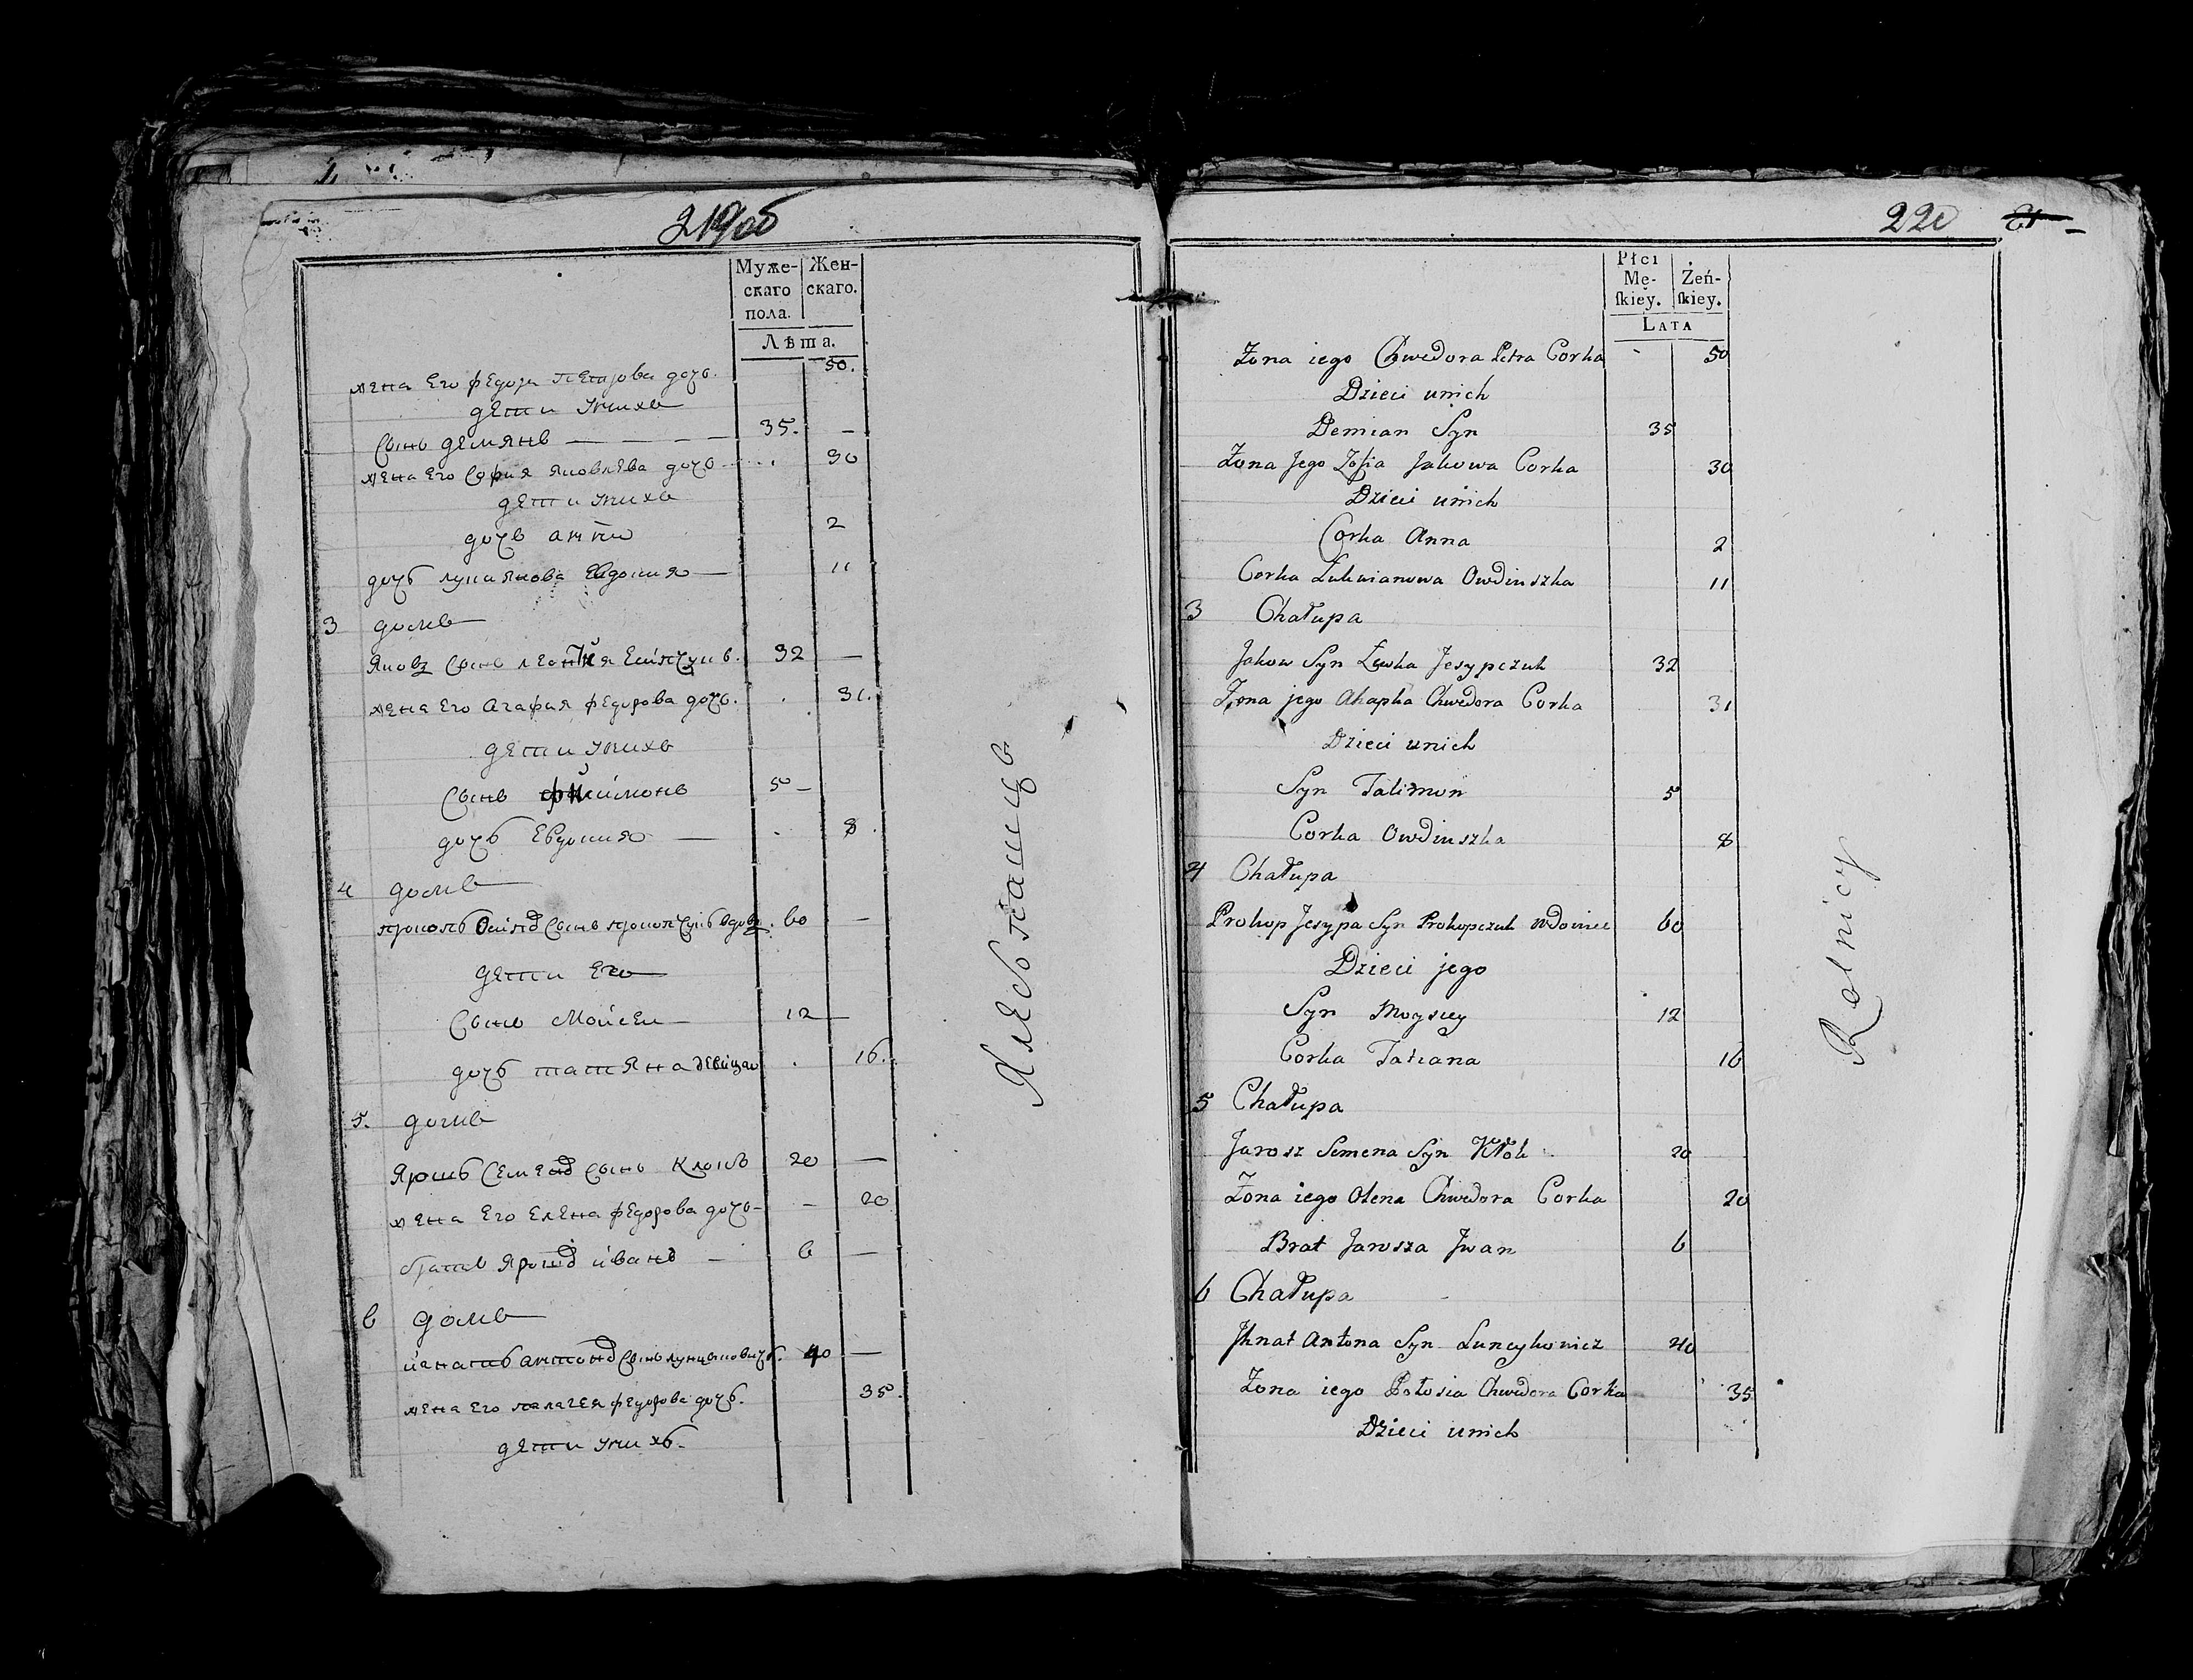 219об
Муже- Жен-
скаго скаго.
пола.
Лѣта.
жена Его федора петрова дочь. 50.
дети у нихъ
Сынъ демянъ — — — — 35. —
жена Его София яковлева дочь 30
дети у нихъ
дочь анна 2
дочь лукиянова Евдокия — 11
3 домъ
яковъ Сынъ леонтия Есипчукъ. 32 —
жена Его Агафия федорова дочь. 31.
дети у нихъ
Сынъ филимонъ 5 —
дочь Евдокия — 8.
4 домъ
прокопъ Осипа Сынъ прокопчукъ вдовъ. 60 —
дети Его
Сынъ Мойсей 12 —
дочь татяна девица 16.
5. домъ
ярошъ Семена Сынъ Клокъ 20 —
жена Его Елена федорова дочь — — 20
братъ яроша иванъ — 6 —
6 домъ
игнатъ антона Сынъ лунцыковичъ. 40 —
жена Его палагея федорова дочь. 35.
дети у нихъ.
Хлебопашцы
220 21
Płci
Mę- Żeń-
skiey. skiey.
LATA
Zona iego Chwedora Petra Corka 50
Dzieci unich
Demian Syn 35
Zona Jego Zofia Jakowa Corka 30
Dzieci unich
Corka Anna 2
Corka Lukianowa Owdiuszka 11
3 Chałupa
Jakow Syn Lewka Jesypczuk 32
Zona jego Ahapka Chwedora Corka 31
Dzieci unich
Syn Talimon 5
Corka Owdiuszka 8
4 Chałupa
Prokop Jesypa Syn Prokopczuk Wdowiec 60
Dzieci jego
Syn Moysiey 12
Corka Tatiana 16
5 Chałupa
Jarosz Semena Syn Kłok 20
Zona iego Olena Chwedora Corka 20
Brat Jarosza Jwan 6
6 Chałupa
Jhnat Antona Syn Luncykowicz 40
Zona iego Połosia Chwedora Corka 35
Dzieci unich
Rolnicy